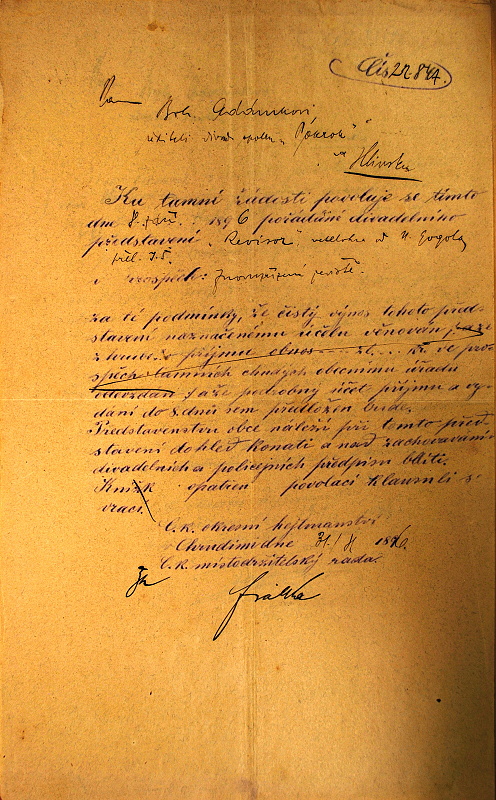 čís 27.844.
Pan
Boh. Adámkovi,
řediteli divad. spolku „Pokrok“
v Hlinsku
Ku tamní žádosti povoluje se tímto
dne 8. září 1896 pořádání divadelního
představení „Revisor“, veselohra od N. Gogola
přel. J. Š.
v prospěch: jeviště.
za té podmínky, že čistý výnos tohoto před-
stavení naznačenému účelu věnován, že
z hrubého příjmu obnos ... zl. ... kr. ve pro-
spěch tamních chudých obecnímu úřadu
odevzdán a že podrobný účet příjmu a vy-
dání do 8 dnů sem předložen bude.
Představenstvu obce náleží při tomto před-
stavení dohled konati a nad zachováváním
divadelních a policejních předpisů bdíti.
opatřen povolací klausulí s
vrací.
C. k. okresní hejtmanství
v Chrudimi dne 31/8 1896
C. k. místodržitelský rada: